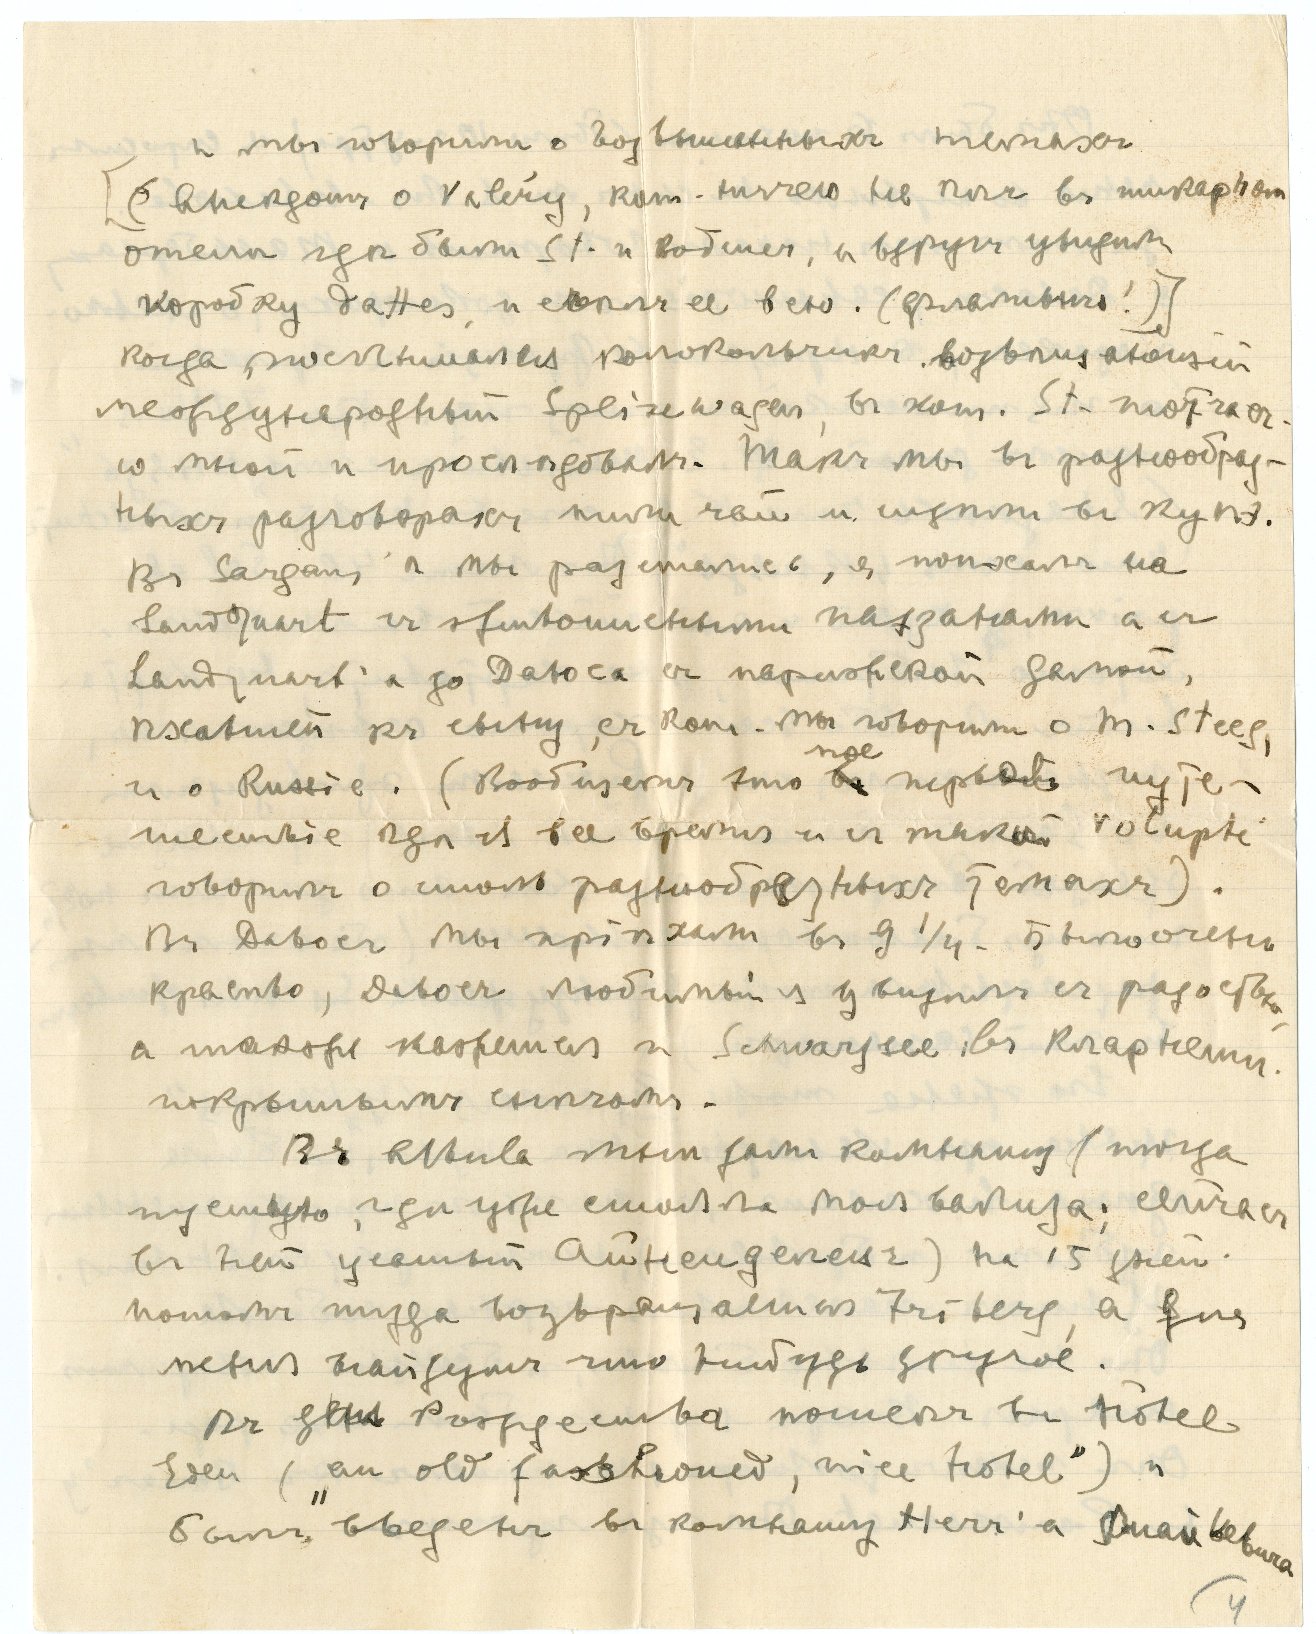 и мы говорили о возвышенныхъ темахъ
[( Анекдотъ о Valéry, кот. ничего не ѣлъ въ шикарном
отелѣ гдѣ были St. и Водлеръ, и вдругъ увидѣлъ
коробку dattes, и съѣлъ ее всю. (флативно!)]
когда послышался колокольчикъ возвѣщающій
международный Speisewagen, въ кот. St. тотчасъ
со мной и прослѣдовалъ. Такъ мы въ разнообраз-
ныхъ разговорахъ пили чай и сидѣли въ купэ.
Въ Sargans'ѣ мы разстались, я поѣхалъ на
Landquart съ
Landquart'а до Давоса съ парижской дамой,
ѣхавшей къ сыну, съ кот. мы говорили о M. Steeg,
и о Russie. (Вообщемъ это мое первое путе-
шествіе гдѣ я все время и съ такой volupté
говорилъ о столь разнообразныхъ темахъ).
Въ Давосъ мы пріѣхали въ 9 1/4. Было очень
красиво, Давосъ любимый я увидѣлъ съ радостью
а также кажется и Schwarzsee, въ Клартели.
покрытымъ снѣгомъ.
Въ Albula мнѣ дали комнату (тогда
пустую, гдѣ уже стояла моя вализа; сейчасъ
въ ней усатый ) на 15 дней.
потомъ туда возвращается Friberg, а для
меня найдутъ что нибудь другое.
Въ день Рождества пошелъ въ Hôtel
Eden ("an old fashioned, nice hôtel") и
былъ "введенъ въ комнату Herr'а
4